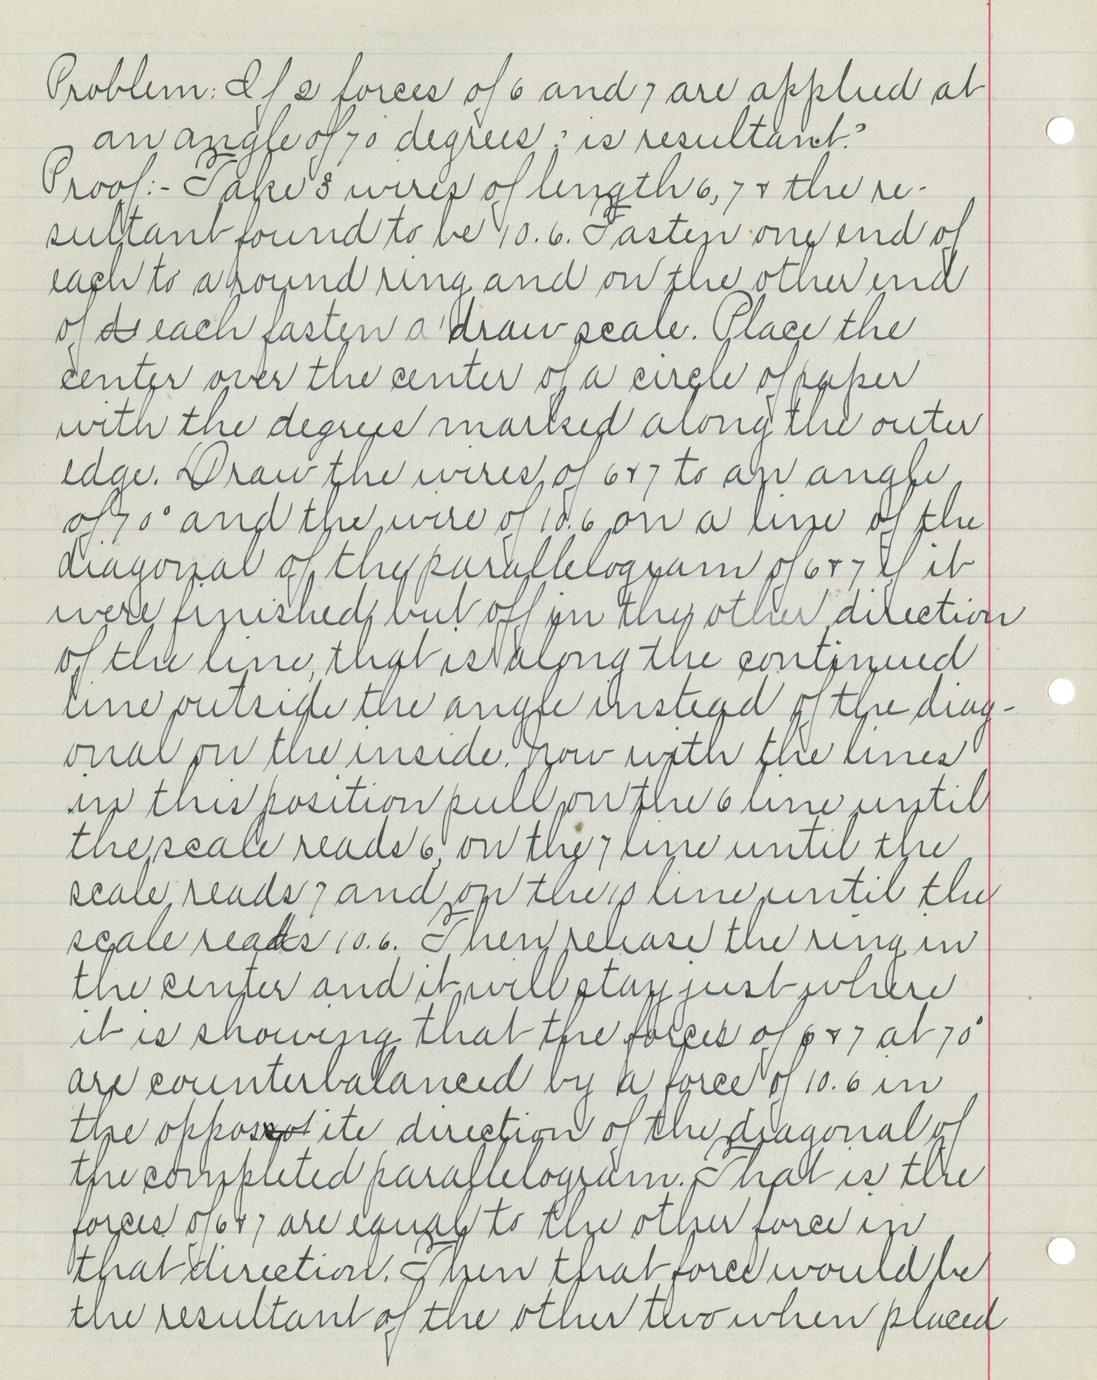 Problem: If 2 forces of 6 and 7 are applied at
an angle of 70 degrees ? is resultant?
Proof:- Take 3 wires of length 6, 7 & the re-
sultant found to be 10.6. Fasten one end of
each to a round ring and on the other end
of each fasten a draw scale. Place the
center over the center of a circle of paper
with the degrees marked along the outer
edge. Draw the wires of 6 & 7 to an angle
of 70° and the wire of 10.6 on a line of the
diagonal of the parallelogram of 6 & 7 if it
were finished, but off in the other direction
of the line, that is along the continued
line outside the angle instead of the diag-
onal on the inside. Now with the lines
in this position pull on the 6 line until
the scale reads 6, on the 7 line until the
scale reads 7 and on the 10 line until the
scale reads 10.6. Then release the ring in
the center and it will stay just where
it is showing that the forces of 6 & 7 at 70°
are counterbalanced by a force of 10.6 in
the opposite direction of the diagonal of
the completed parallelogram. That is the
forces of 6 & 7 are equal to the other force in
that direction. Then that force would be
the resultant of the other two when placed